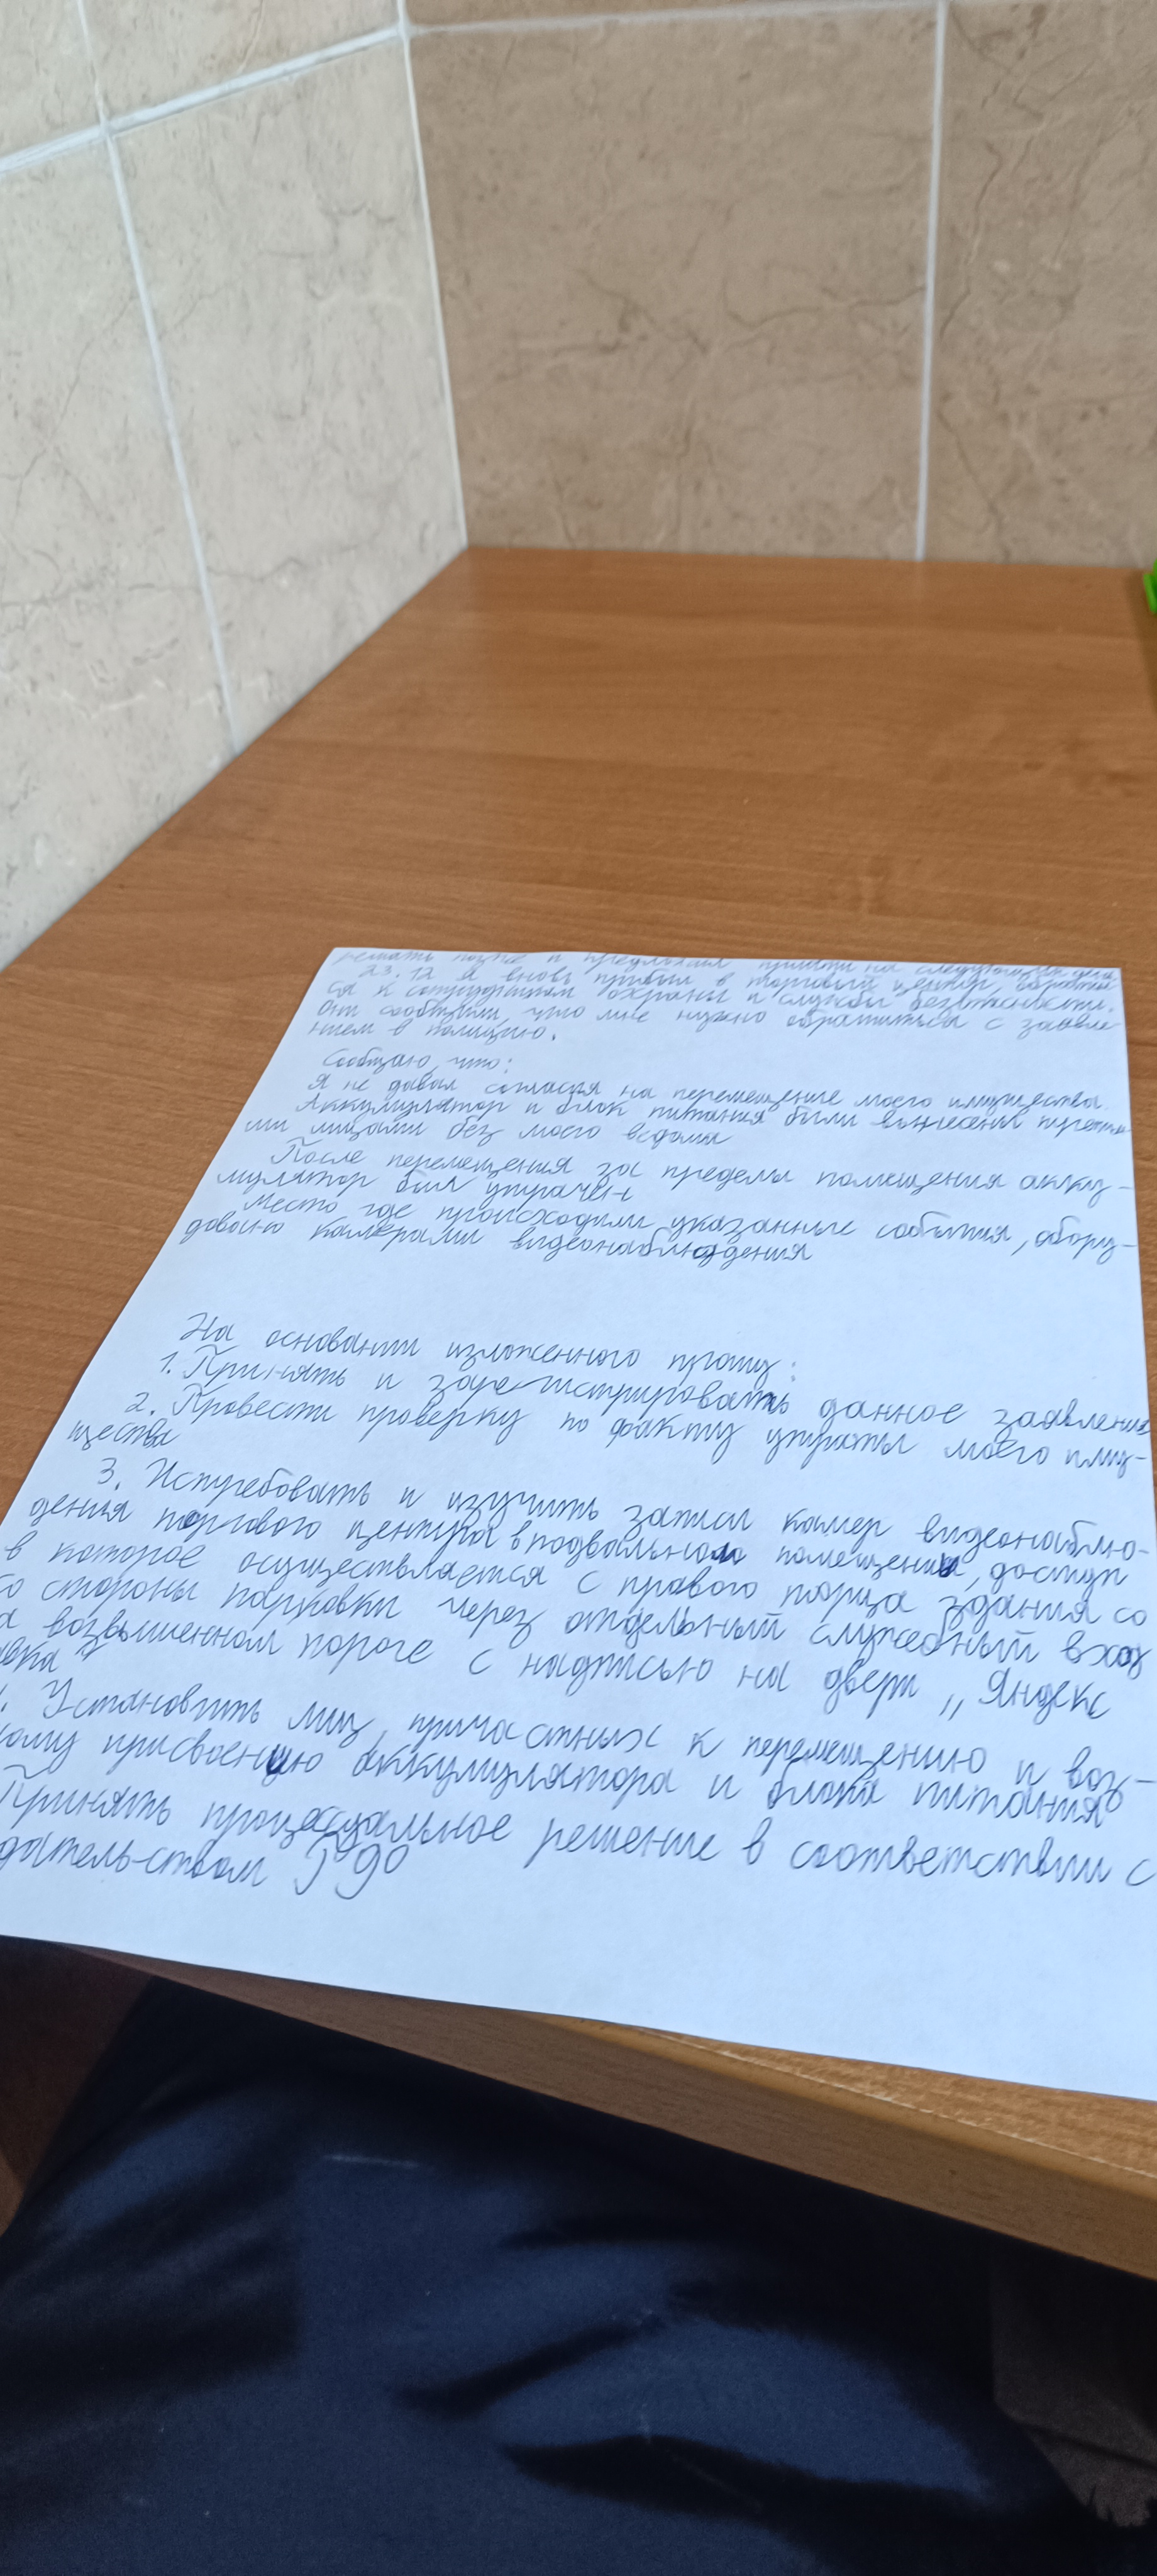 решать позже и предложил прийти на следующий день
23.12 я вновь прибыл в торговый центр, обратил
ся к сотрудникам охраны и службы безопасности.
Они сообщили, что мне нужно обратиться с заявле
нием в полицию.
Сообщаю, что:
Я не давал согласия на перемещение моего имущества.
Аккумулятор и блок питания были вынесены третьи-
ми лицами без моего ведома
После перемещения за пределы помещения акку-
мулятор был утрачен
Место где происходили указанные события, обору-
довано камерами видеонаблюдения
На основании изложенного прошу:
1. Принять и зарегистрировать данное заявление
2. Провести проверку по факту утраты моего иму-
щества
3. Истребовать и изучить записи камер видеонаблю-
дения торгового центра в подвального помещения, доступ
в которое осуществляется с правого торца здания со
со стороны парковки через отдельный служебный вход
а возвышенном пороге с надписью на двери „Яндекс
вка"
. Установить лиц, причастных к перемещению и воз-
ому присвоению аккумулятора и блока питания
Принять процессуальное решение в соответствии с
дательством РФ